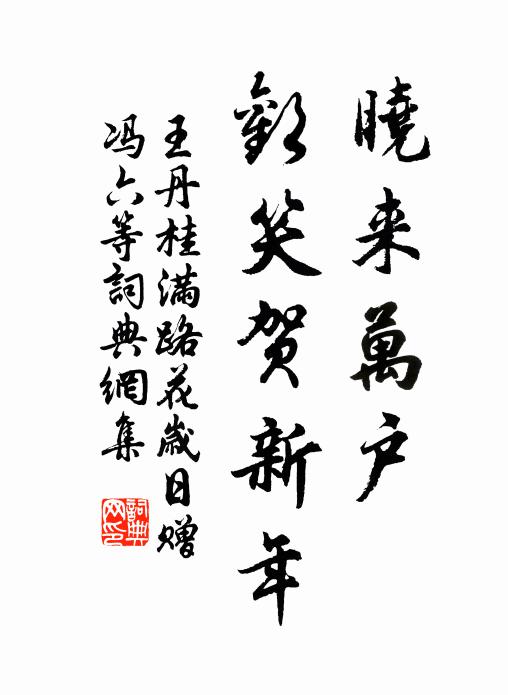 曉来萬户
歡笑贺新年
王丹桂满路花歲日赠
冯六等詞典網集
詞典网印